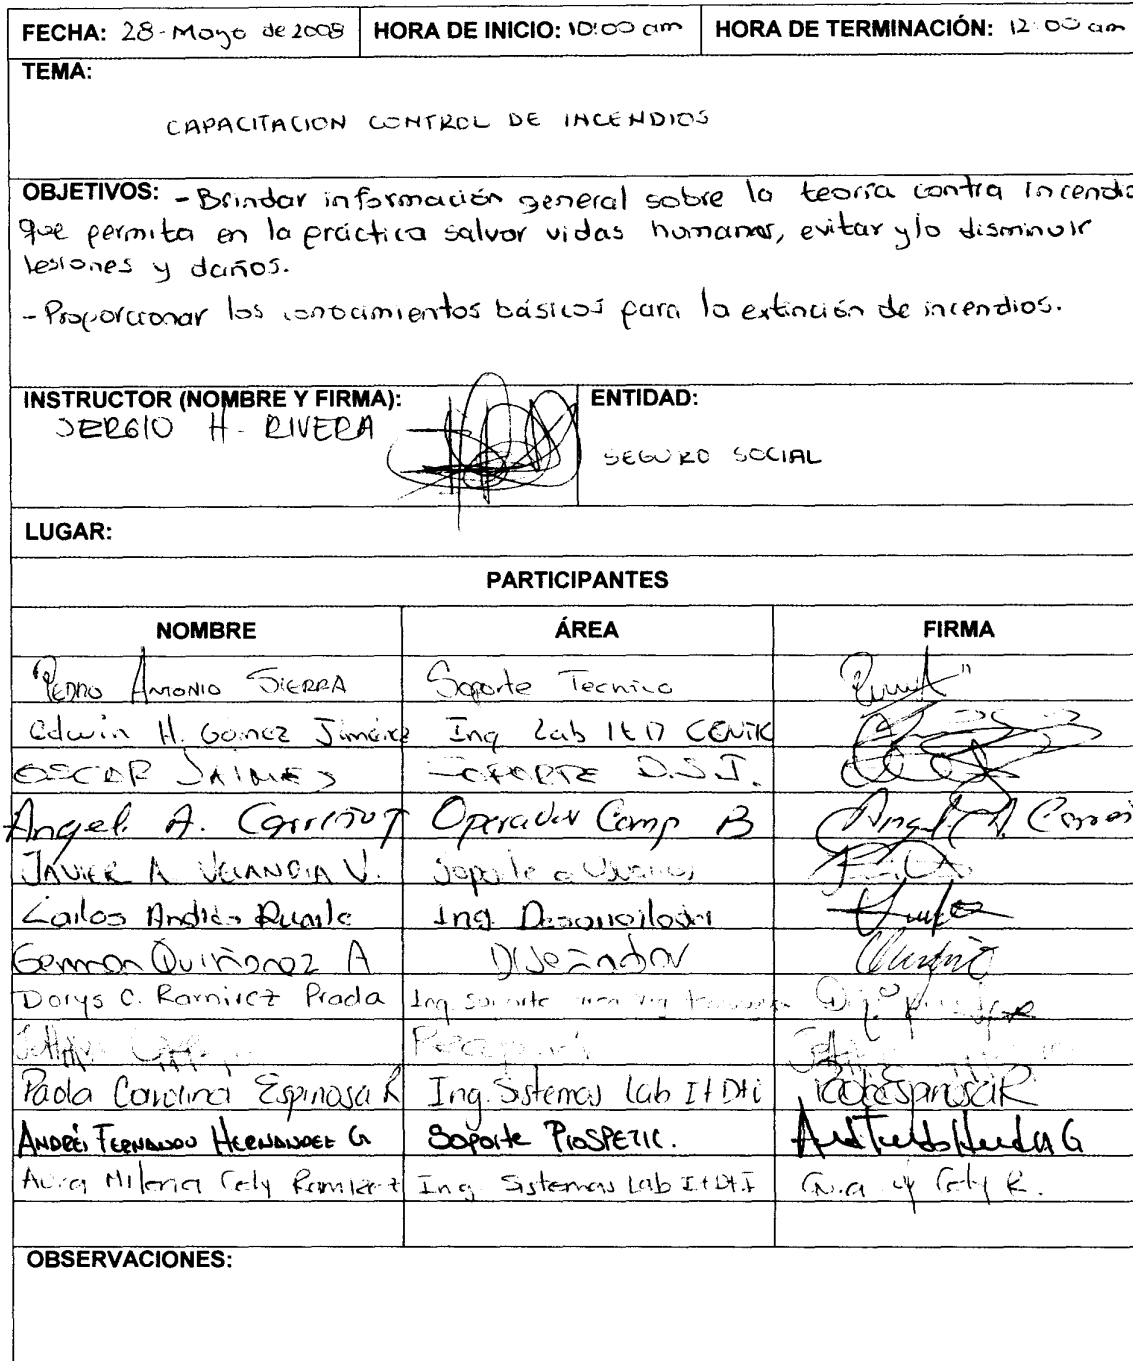 FECHA: 28-Mayo de 2008 HORA DE INICIO: 10:00 am HORA DE TERMINACIÓN: 12:00 am
TEMA:
CAPACITACION CONTROL DE INCENDIOS
OBJETIVOS: - Brindar información general sobre la teoría contra incendio
que permita en la práctica salvar vidas humanas, evitar y/o disminuir
lesiones y daños.
- Proporcionar los conocimientos básicos para la extinción de incendios.
INSTRUCTOR (NOMBRE Y FIRMA): ENTIDAD:
SERGIO H. RIVERA
SEGURO SOCIAL
LUGAR:
PARTICIPANTES
NOMBRE ÁREA FIRMA
PEDRO ANTONIO SIERRA Soporte Tecnico
Edwin H. Gómez Jiménez Ing Lab CENTIC
OSCAR JAIMES SOPORTE D.S.I.
Angel. A. Carreño T Operador Comp B Angel. A. Carreño
JAVIER A VELANDIA V. Soporte a Usuarios
Carlos Andrés Duarte Ing. Desarrollador
German Quiñonez A DISEÑADOR
Dorys C. Ramirez Prada Ing soporte

Paola Carolina Espinosa R Ing. Sistemas Lab I+DTi PaolaEspinosaR
ANDRÉS FERNANDO HERNANDEZ G Soporte PROSPETIC.
Aura Milena Cely Ramirez Ing Sistemas Lab I+DTI Cely R.
OBSERVACIONES: